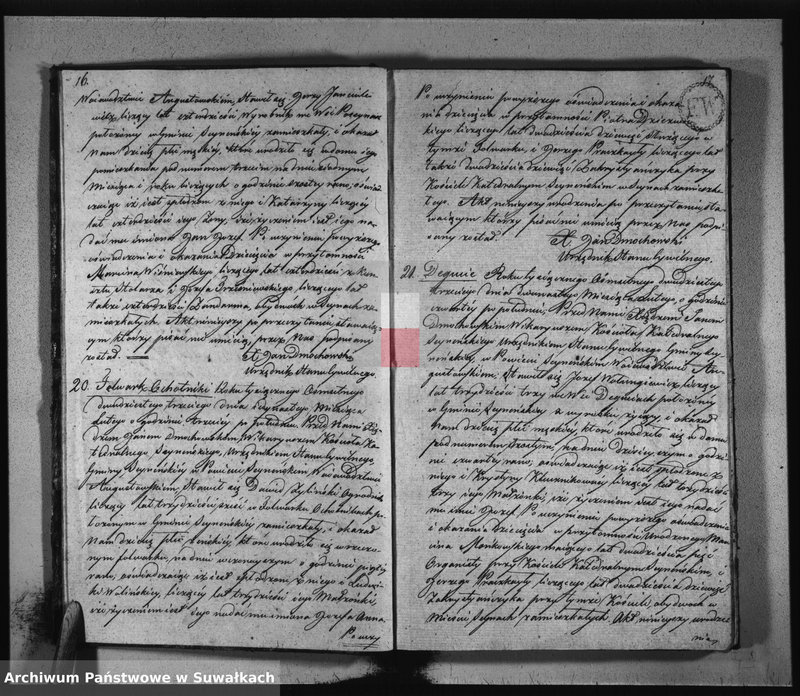 16.
Województwie Augustowskim, Stawił się Jerzy
liczący lat czterdzieści Wyrobnik we Wsi
położony w Gminie Seyneńskiey zamieszkały, i okazał
Nam dziecię płci męskiey, które urodziło się w domu iego
pomieszkania pod numerem trzecim na dniu
Miesiąca i roku bieżących o godzinie szostey rano, oświad
czaiąc iż iest spłodzone z niego i Katarzyny liczącey
lat czterdzieści iego Żony, iż życzeniem iest iego na
dać mu imiona Jan Jozef. Po uczynieniu powyższego
oświadczenia i okazaniu Dziecięcia w przytomności
Marcina Wiśniewskiego liczącego lat czterdzieści
Stolarza i Jozefa liczącego lat
także czterdzieści Żandarma, obydwoch w Seynach za
mieszkałych. Akt niniejszy po przeczytaniu stawaią
cym ktorzy pisać nie umieią, przez Nas podpisany
został.
X. Jan Dmochowski
Urzędnik Stanu Cywilnego.
20. Folwark Ochotniki Roku tysiącznego Ośmsetnego
dwudziestego trzeciego dnia Miesiąca
Lutego o godzinie trzeciey po południu. Przed Nami Xię
dzem Janem Dmochowskim Wikaryuszem Kościoła Ka
tedralnego Seyneńskiego, Urzędnikiem Stanu Cywilnego
Gminy Seyneńskiey w Powiecie Seyneńskim Województwie
Augustowskim, Stawił się Dawid Żyliński Ogrodnik
liczący lat trzydzieści sześć w Folwarku Ochotnikach po
łożonym w Gminie Seyneńskiey zamieszkały, i okazał
Nam dziecię płci żeńskiey, które urodziło się w rzeczo
nym folwarku, na dniu wczorayszym o godzinie piątey
rano, oświadczaiąc iż iest spłodzone z niego i Ludwi
ki Wolińskiey, liczącey lat trzydzieści iego Małżonki,
iż życzeniem iest iego nadać mu imiona Jozefa Anna
Po uczy
17.
FW
Po uczynieniu powyższego oświadczenia i okaza
nia dziecięcia w przytomności
liczącego lat dwadzieścia dziewięć
tymże Folwarku, i Jerzego liczącego lat
także dwadzieścia dziewięć Zakrystyańczyka przy
Kościele Katedralnym Seyneńskim w Seynach zamieszka
łego. Akt niniejszy urodzenia po przeczytaniu sta
waiącym ktorzy pisać nie umieią przez Nas podpi
sany został.
X. Jan Dmochowski
Urzędnik Stanu Cywilnego.
21. Degucie Roku tysiącznego Ośmsetnego dwudziestego
trzeciego dnia Miesiąca Lutego, o godzinie
czwartey po południu, Przed Nami Xiędzem Janem
Dmochowskim Wikaryuszem Kościoła Katedralnego
Seyneńskiego Urzędnikiem Stanu Cywilnego Gminy Sey
neńskiey, w Powiecie Seyneńskim Województwie Au
gustowskim, Stawił się Jozef liczący
lat trzydzieści trzy we Wsi Deguciach położoney
w Gminie Seyneńskiey z wyrobku żyiący i okazał
Nam dziecię płci męskiey które urodziło się w domu
pod numerem szostym, na dniu dzisieyszym o godzi
nie czwartey rano, oświadczaiąc iż iest spłodzone z
niego i Krystyny liczącey lat trzydzieści
trzy iego Małżonki, iż życzeniem iest iego nadać
mu imie Jozef. Po uczynieniu powyższego oświadczenia
i okazania Dziecięcia w przytomności Urodzonego Mar
cina Monkowskiego maiącego lat dwadzieścia pięć
Organisty przy Kościele Katedralnym Seyneńskim, i
Jerzego liczącego lat dwadzieścia dziewięć
Zakrystyańczyka przy tymże Kościele, obydwoch w
Mieście Seynach zamieszkałych. Akt niniejszy urodze
nia
Archiwum Państwowe w Suwałkach